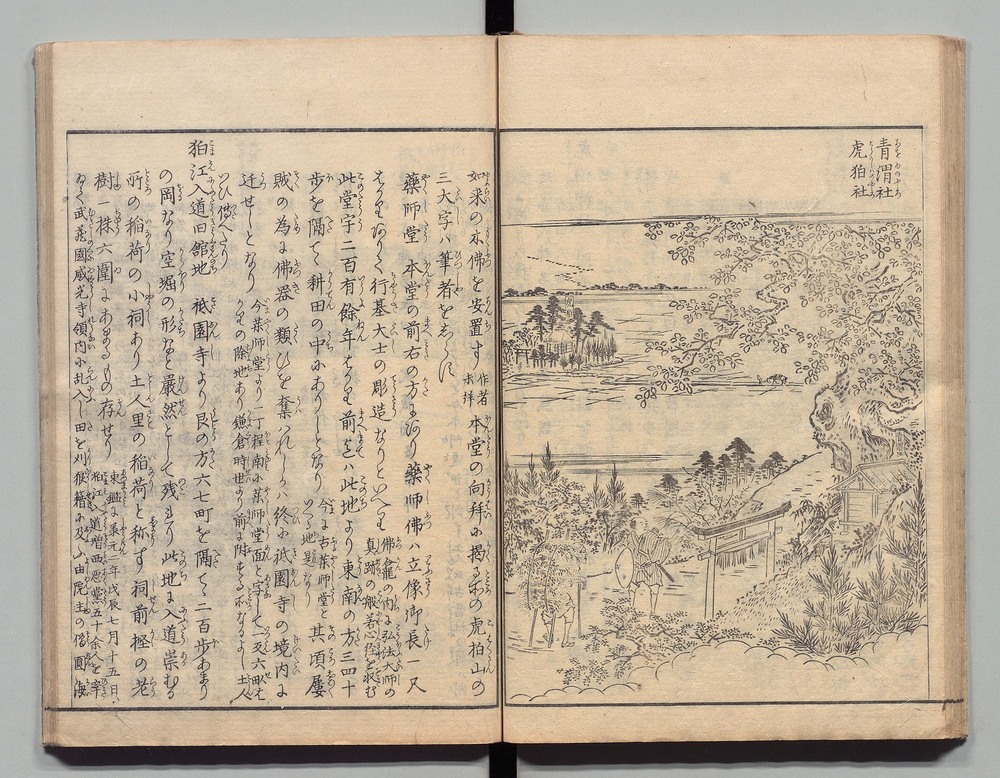 青渭社
虎狛社
如来の本佛を安置す 作者未詳 本堂の向拜に掲る所の虎狛山の
三大字ハ筆者をしらす
藥師堂 本堂の前右の方にあり 藥師佛ハ立像御長一尺
はかりありて行基大士の彫造なりといへり 佛龕の内に弘法大師の
真蹟の般若心経を収む
此堂宇二百有餘年はかり前迄ハ此地より東南の方三四十
歩を隔て耕田の中にありしとなり 今に古藥師堂と
いへる地是なり 其頃屢
賊の為に佛器の類ひを奪ハれしかハ終に祇園寺の境内に
迁せしとなり 今藥師堂より一丁程南に藥師堂面と字して一反六畝
かりの除地あり鎌倉時世より前に附する所なるよし土人
いひ傳へたり
狛江入道旧館地 祇園寺より艮の方六七町を隔て二百歩あまり
の岡なり空堀の形なと嚴然として残れり 此地に入道崇むる
所の稲荷の小祠あり土人里の稲荷と称す 祠前樫の老
樹一株六圍にあまるもの存せり 東鑑に承元二年戊辰七月十五日
狛江入道増西悪黨五十余人を率
ゐて武蔵國威光寺領内に乱入し田を刈狼藉に及ふ由院主の僧圓海